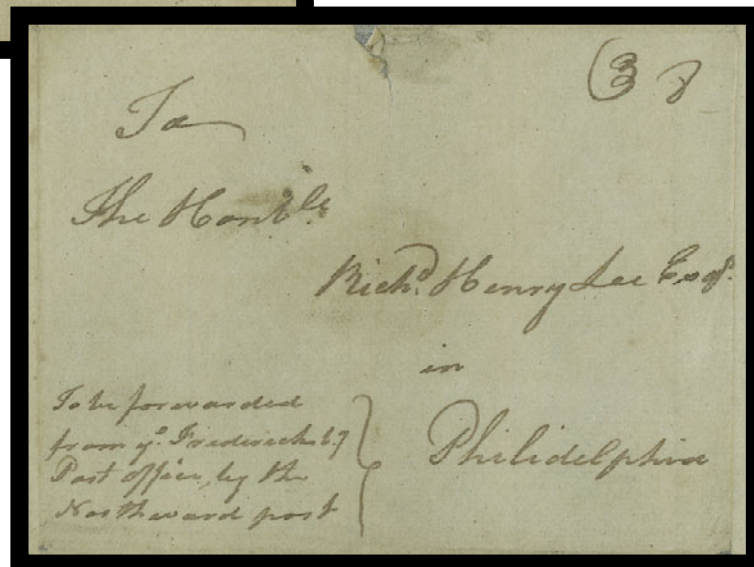 To
The Honble.
Richd. Henry Lee Esqr.
in
Philidelphia
To be forwarded
from ye. Fredericksbg
Post office, by the
Northward post